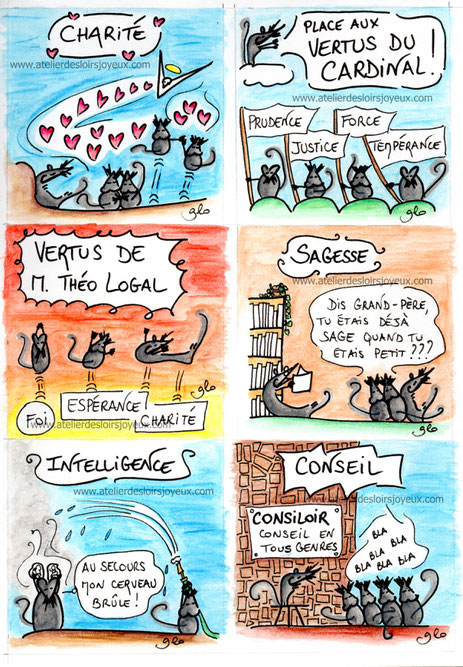 CHARITÉ
www.atelierdesloirsjoyeux.com
glo
PLACE AUX
VERTUS DU
CARDINAL!
www.atelierdesloirsjoyeux.com
PRUDENCE
JUSTICE
FORCE
TEMPÉRANCE
glo
VERTUS DE
M. THÉO LOGAL
FOI
ESPÉRANCE
CHARITÉ
glo
www.atelierdesloirsjoyeux.com
SAGESSE
www.atelierdesloirsjoyeux.com
DIS GRAND-PÈRE,
TU ÉTAIS DÉJÀ
SAGE QUAND TU
ÉTAIS PETIT???
glo
INTELLIGENCE
www.atelierdesloirsjoyeux.com
AU SECOURS
MON CERVEAU
BRÛLE!
glo
CONSEIL
www.atelierdesloirsjoyeux.com
CONSILOIR
CONSEIL EN
TOUS GENRES
BLA
BLA BLA
BLA BLA BLA
glo